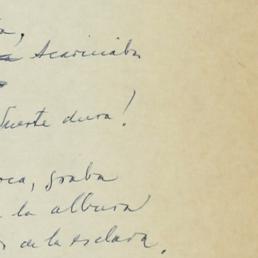 a,
acariciaba
Suerte dura!
oca, graba
la albura
de la esclava.